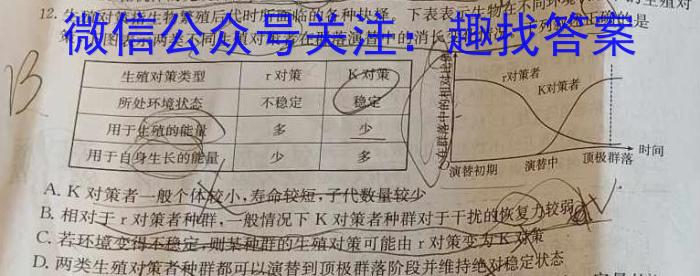 12.生殖对策是生物繁殖后代时所面临的各种抉择
下表表示生物在不同环境
生殖对
微信公众号关注：趣找答案
的是
生殖对策类型 r对策 K对策
所处环境状态 不稳定 稳定
用于生殖的能量 多 少
用于自身生长的能量 少 多
r对策者
K对策者
时间
演替初期 演替中 顶极群落
A. K对策者一般个体较小,寿命较短,子代数量较少
B. 相对于r对策者种群,一般情况下K对策者种群对于干扰的恢复力较弱
C. 若环境变得不稳定,则某种群的生殖对策可能由r对策变为K对策
D. 两类生殖对策者种群都可以演替到顶极群落阶段并维持绝对稳定状态